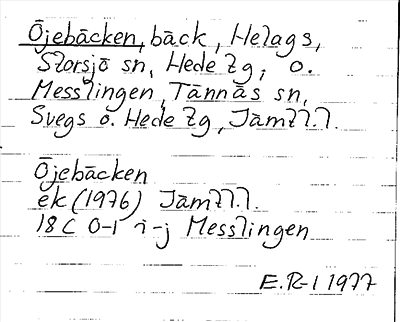 Öjebäcken, bäck, Helags,
Storsjö sn, Hede tg, o.
Messlingen, Tännäs sn,
Svegs o. Hede tg, Jämtl.l.
Öjebäcken
ek (1976) Jämtl.l.
18C 0-1 i-j Messlingen
E.R-l 1977